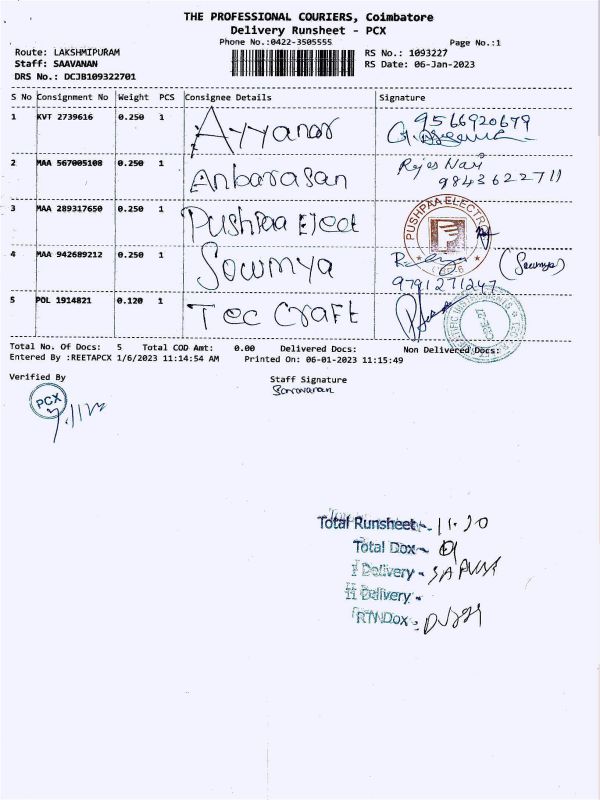 THE PROFESSIONAL COURIERS, Coimbatore
Delivery Runsheet - PCX
Phone No.:0422-3505555
Page No.:1
Route: LAKSHMIPURAM
RS No.: 1093227
Staff: SAAVANAN
RS Date: 06-Jan-2023
DRS No.: DCJB109322701
S No Consignment No Weight PCS Consignee Details Signature
1 KVT 2739616 0.250 1 Ayyanar 9566920679
2 MAA 567005108 0.250 1 Anbarasan 9843622711
3 MAA 289317650 0.250 1 Pushpaa Elect PUSHPAA ELECTRO
4 MAA 942689212 0.250 1 Sowmya (Sowmya)
9791271247
5 POL 1914821 0.120 1 Tec Craft
Total No. Of Docs: 5 Total COD Amt: 0.00 Delivered Docs: Non Delivered Docs:
Entered By :REETAPCX 1/6/2023 11:14:54 AM Printed On: 06-01-2023 11:15:49
Verified By
Staff Signature
PCX
Total Runsheet - 11.20
Total Dox -
I Delivery -
II Delivery -
RTNDox -